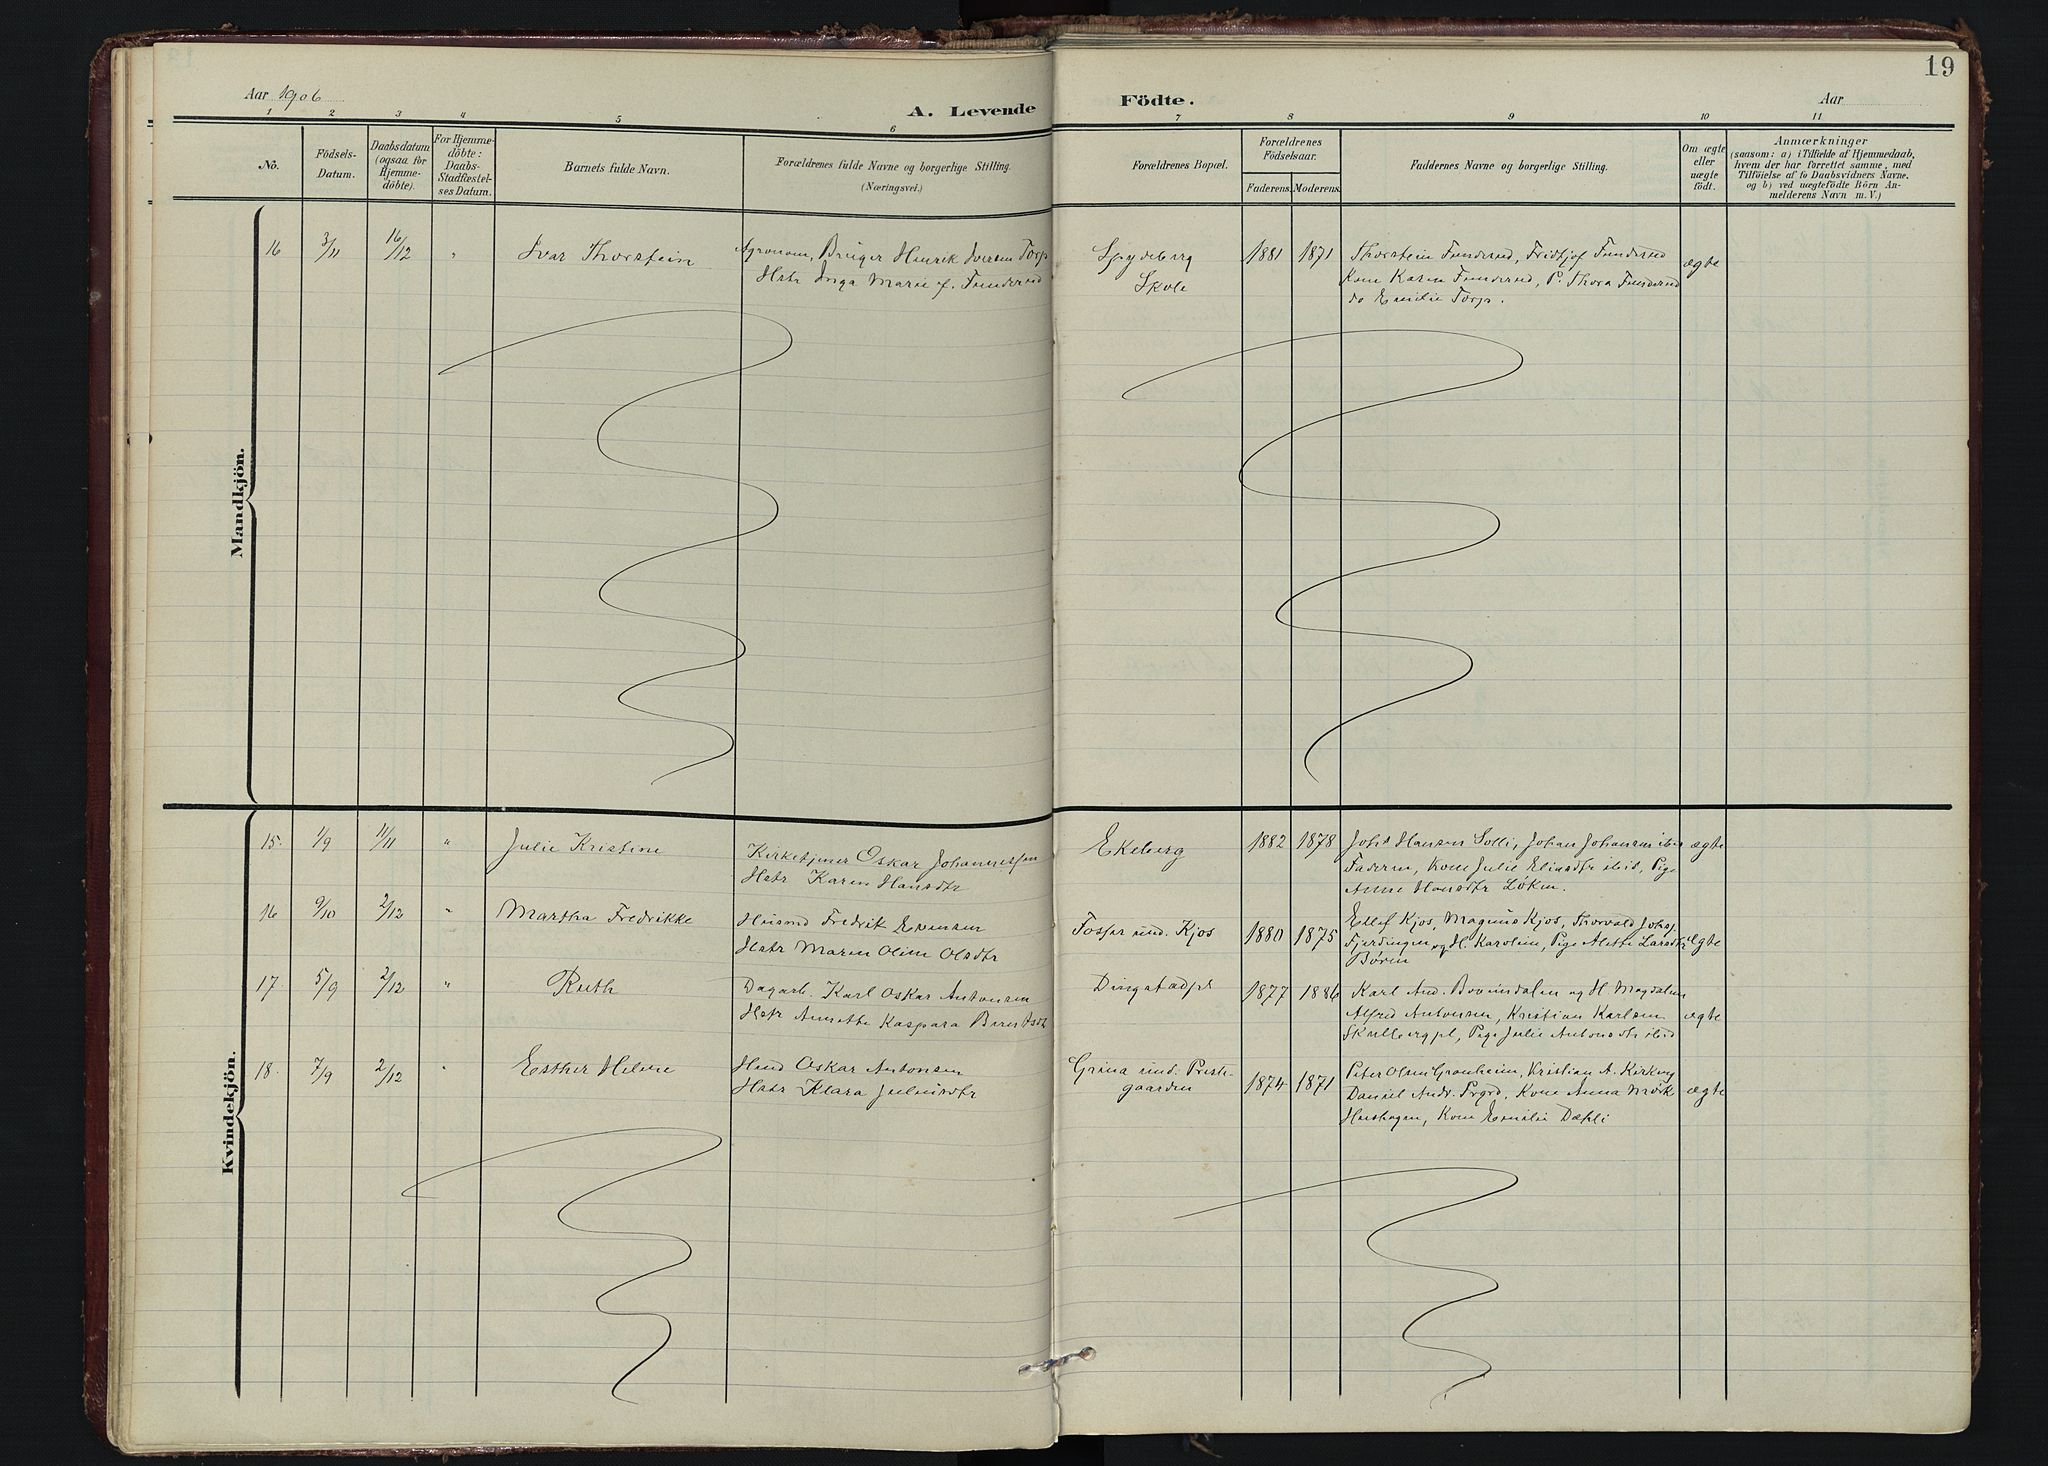 19
Aar 1906
A. Levende Födte.
Aar
1 2 3 4 5 6 7 8 9 10 11
No.
Födsels-
Datum.
Daabsdatum
(ogsaa for
Hjemme-
döbte).
For Hjemme-
döbte:
Daabs-
Stadfæstel-
ses Datum.
Barnets fulde Navn.
Forældrenes fulde Navne og borgerlige Stilling.
(Næringsvei.)
Forældrenes Bopæl.
Forældrenes
Födselsaar.
Faderens. Moderens.
Faddernes Navne og borgerlige Stilling.
Om ægte
eller
uægte
födt.
Anmærkninger
(saasom: a) i Tilfælde af Hjemmedaab,
hvem der har forrettet samme, med
Tilföielse af to Daabsvidners Navne,
og b) ved uægtefödte Börn An-
melderens Navn m. V.)
Mandkjön.
16 3/11 16/12 " Ivar Thorstein
Agronom, Bruger Henrik Iversen Torp
Hstr Inga Marie f. Funderud
Spydeberg
Skole
1881 1871
Thorstein Funderud, Fridtjof Funderud
Kone Karen Funderud, P. Thora Funderud
do Emilie Torp.
ægte
Kvindekjön.
15. 1/9 11/11 " Julie Kristine
Kirketjener Oskar Johannessen
Hstr Karen Hansdtr
Ekeberg
1882 1878
Johs Hansen Solli, Johan Johansen ibid
Faderen, Kone Julie Eliasdtr ibid, Pige
Anne Hansdtr Løken.
ægte
16 9/10 2/12 " Martha Fredrikke
Husmd Fredrik Evensen
Hstr Maren Oline Olsdtr
Fosser und. Kjos
1880 1875
Ellef Kjos, Magnus Kjos, Thorvald Johs.
Fjerdingen og H. Karoline, Pige Alette Larsdtr
Børin
ægte
17. 5/9 2/12 " Ruth
Dagarb. Karl Oskar Antonsen
Hstr Annette Kaspara
Dingstadpl
1877 1886
Karl And. Bovimdalen og H Magdalene
Alfred Antonsen, Kristian Karlsen
Skulbergpl, Pige Julie Antonsdtr ibid
ægte
18. 7/9 2/12 " Esther Helene
Hmd Oskar Antonsen
Hstr Klara Juliusdtr
Grina und. Preste-
gaarden
1874 1871
Peter Olsen Gronheim, Kristian A. Kirkeng
Daniel Andr. Prgrd, Kone Anna Mørk
Kone Emilie Dæhli
ægte